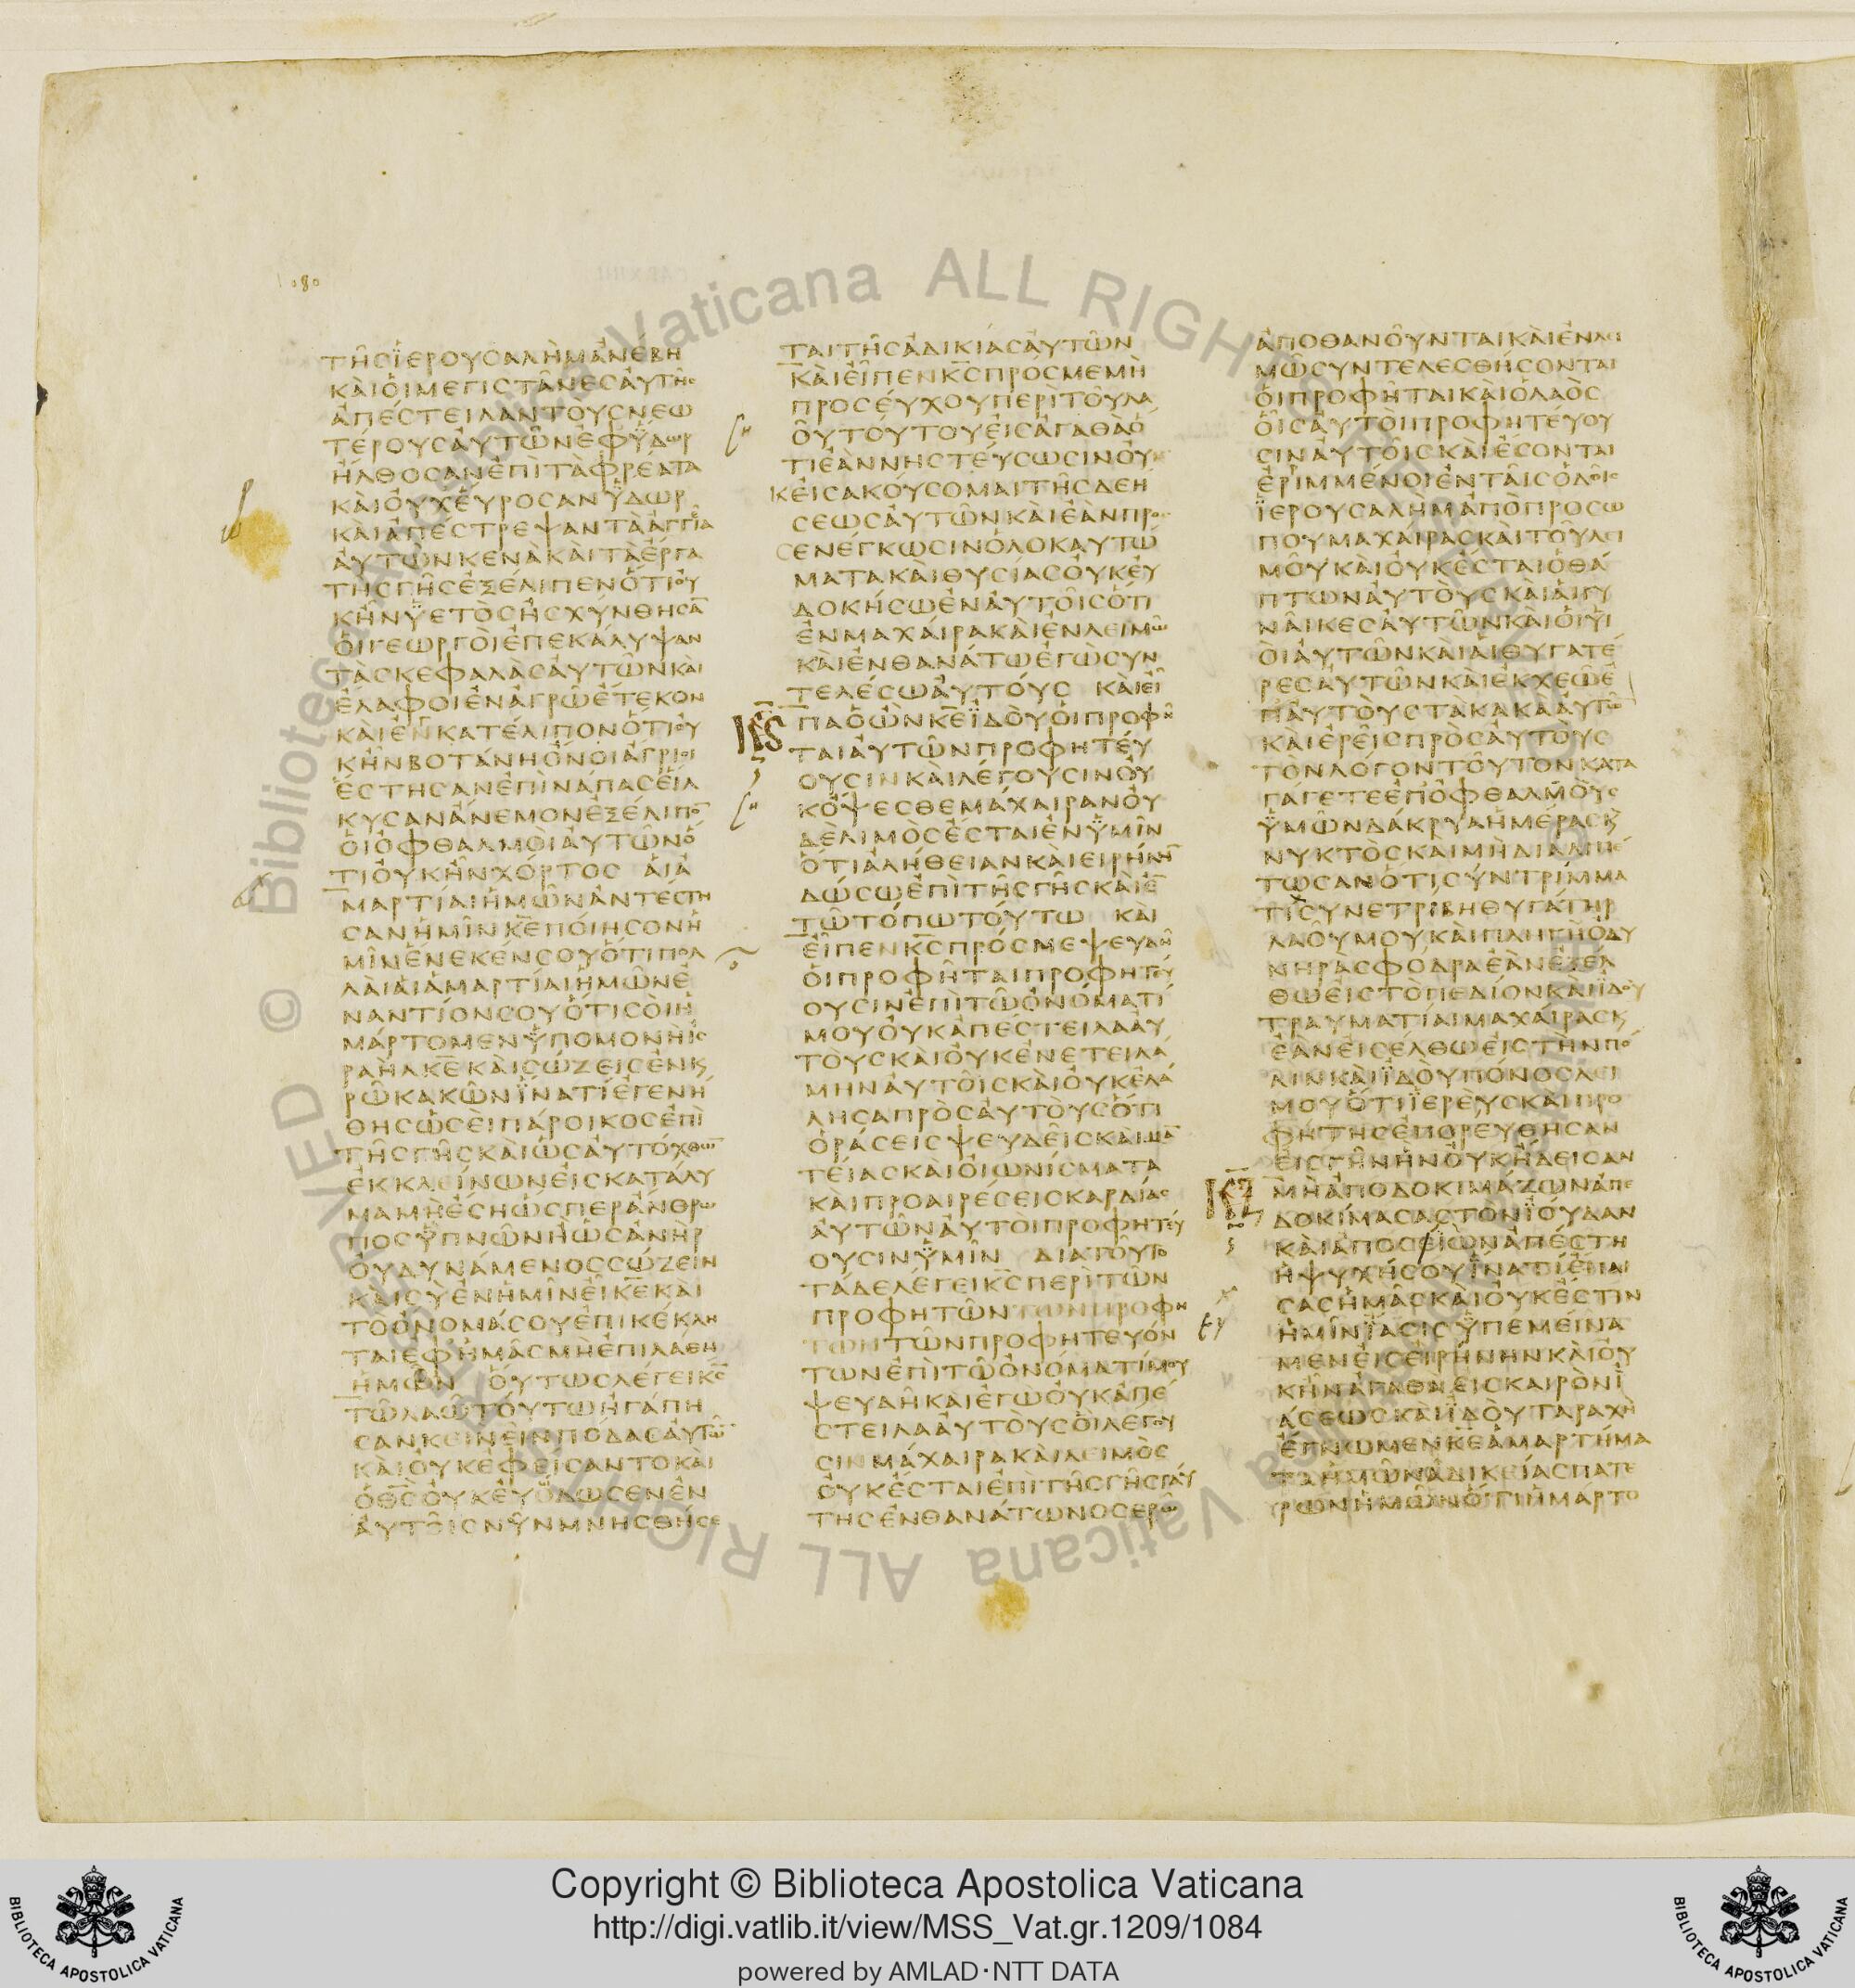 1080
ΤΗϹΪΕΡΟΥϹΑΛΗΜΑΝΕΒΗ
ΚΑΙΟΙΜΕΓΙϹΤΑΝΕϹΑΥΤΗϹ
ΑΠΕϹΤΕΙΛΑΝΤΟΥϹΝΕΩ
ΤΕΡΟΥϹΑΥΤΩΝΕΦΫΔΩΡ
ΗΛΘΟϹΑΝΕΠΙΤΑΦΡΕΑΤΑ
ΚΑΙΟΥΧΕΥΡΟϹΑΝΫΔΩΡ
ΚΑΙΑΠΕϹΤΡΕΨΑΝΤΑΑΓΓΙΑ
ΑΥΤΩΝΚΕΝΑΚΑΙΤΑΕΡΓΑ
ΤΗϹΓΗϹΕΞΕΛΙΠΕΝΟΤΙΟΥ
ΚΗΝΫΕΤΟϹΗϹΧΥΝΘΗϹΑ̅
ΟΙΓΕΩΡΓΟΙΕΠΕΚΑΛΥΨΑΝ
ΤΑϹΚΕΦΑΛΑϹΑΥΤΩΝΚΑΙ
ΕΛΑΦΟΙΕΝΑΓΡΩΕΤΕΚΟΝ
ΚΑΙΕΝΚΑΤΕΛΙΠΟΝΟΤΙΟΥ
ΚΗΝΒΟΤΑΝΗΟΝΟΙΑΓΡΙΟΙ
ΕϹΤΗϹΑΝΕΠΙΝΑΠΑϹΕΙΛ
ΚΥϹΑΝΑΝΕΜΟΝΕΞΕΛΙΠΟ̅
ΟΙΟΦΘΑΛΜΟΙΑΥΤΩΝΟ
ΤΙΟΥΚΗΝΧΟΡΤΟϹ ΑΙΑ
ΜΑΡΤΙΑΙΗΜΩΝΑΝΤΕϹΤΗ
ϹΑΝΗΜΙΝΚ̅Ε̅ΠΟΙΗϹΟΝΗ
ΜΙΝΕΝΕΚΕΝϹΟΥΟΤΙΠΟΛ
ΛΑΙΑΙΑΜΑΡΤΙΑΙΗΜΩΝΕ
ΝΑΝΤΙΟΝϹΟΥΟΤΙϹΟΙΗ
ΜΑΡΤΟΜΕΝΫΠΟΜΟΝΗΙϹ
ΡΑΗΛΚ̅Ε̅ΚΑΙϹΩΖΕΙϹΕΝΚ
ΡΩΚΑΚΩΝΪΝΑΤΙΕΓΕΝΗ
ΘΗϹΩϹΕΙΠΑΡΟΙΚΟϹΕΠΙ
ΤΗϹΓΗϹΚΑΙΩϹΑΥΤΟΧΘΩ̅
ΕΚΚΛΕΙΝΩΝΕΙϹΚΑΤΑΛΥ
ΜΑΜΗΕϹΗΩϹΠΕΡΑΝΘΡΩ
ΠΟϹΫΠΝΩΝΗΩϹΑΝΗΡ
ΟΥΔΥΝΑΜΕΝΟϹϹΩΖΕΙΝ
ΚΑΙϹΥΕΝΗΜΙΝΕΙΚ̅Ε̅ΚΑΙ
ΤΟΟΝΟΜΑϹΟΥΕΠΙΚΕΚΛΗ
ΤΑΙΕΦΗΜΑϹΜΗΕΠΙΛΑΘΗ
ΗΜΩΝ ΟΥΤΩϹΛΕΓΕΙΚ̅Ϲ̅
ΤΩΛΑΩΤΟΥΤΩΗΓΑΠΗ
ϹΑΝΚΕΙΝΕΙΝΠΟΔΑϹΑΥΤΩ̅
ΚΑΙΟΥΚΕΦΕΙϹΑΝΤΟΚΑΙ
ΟΘ̅Ϲ̅ΟΥΚΕΥΟΔΩϹΕΝΕΝ
ΑΥΤΟΙϹΝΥΝΜΝΗϹΘΗϹΕ
ΤΑΙΤΗϹΑΔΙΚΙΑϹΑΥΤΩΝ
ΚΑΙΕΙΠΕΝΚ̅Ϲ̅ΠΡΟϹΜΕΜΗ
ΠΡΟϹΕΥΧΟΥΠΕΡΙΤΟΥΛΑ
ΟΥΤΟΥΤΟΥΕΙϹΑΓΑΘΑΟ
ΤΙΕΑΝΝΗϹΤΕΥϹΩϹΙΝΟΥ
ΚΕΙϹΑΚΟΥϹΟΜΑΙΤΗϹΔΕΗ
ϹΕΩϹΑΥΤΩΝΚΑΙΕΑΝΠΡΟϹ
ΕΝΕΓΚΩϹΙΝΟΛΟΚΑΥΤΩ
ΜΑΤΑΚΑΙΘΥϹΙΑϹΟΥΚΕΥ
ΔΟΚΗϹΩΕΝΑΥΤΟΙϹΟΤΙ
ΕΝΜΑΧΑΙΡΑΚΑΙΕΝΛΕΙΜΩ
ΚΑΙΕΝΘΑΝΑΤΩΕΓΩϹΥΝ
ΤΕΛΕϹΩΑΥΤΟΥϹ ΚΑΙΕΙ
Ι̅Ϛ̅ ΠΑΟΩΝΚ̅Ε̅ΪΔΟΥΟΙΠΡΟΦΗ
ΤΑΙΑΥΤΩΝΠΡΟΦΗΤΕΥ
ΟΥϹΙΝΚΑΙΛΕΓΟΥϹΙΝΟΥ
ΚΟΨΕϹΘΕΜΑΧΑΙΡΑΝΟΥ
ΔΕΛΙΜΟϹΕϹΤΑΙΕΝΫΜΙΝ
ΟΤΙΑΛΗΘΕΙΑΝΚΑΙΕΙΡΗΝΗ̅
ΔΩϹΩΕΠΙΤΗϹΓΗϹΚΑΙΕ̅
ΤΩΤΟΠΩΤΟΥΤΩ ΚΑΙ
ΕΙΠΕΝΚ̅Ϲ̅ΠΡΟϹΜΕΨΕΥΔΗ
ΟΙΠΡΟΦΗΤΑΙΠΡΟΦΗΤΕΥ
ΟΥϹΙΝΕΠΙΤΩΟΝΟΜΑΤΙ
ΜΟΥΟΥΚΑΠΕϹΤΕΙΛΑΑΥ
ΤΟΥϹΚΑΙΟΥΚΕΝΕΤΕΙΛΑ
ΜΗΝΑΥΤΟΙϹΚΑΙΟΥΚΕΛΑ
ΛΗϹΑΠΡΟϹΑΥΤΟΥϹΟΤΙ
ΟΡΑϹΕΙϹΨΕΥΔΕΙϹΚΑΙΜΑ̅
ΤΕΙΑϹΚΑΙΟΙΩΝΙϹΜΑΤΑ
ΚΑΙΠΡΟΑΙΡΕϹΕΙϹΚΑΡΔΙΑϹ
ΑΥΤΩΝΑΥΤΟΙΠΡΟΦΗΤΕΥ
ΟΥϹΙΝΫΜΙΝ ΔΙΑΤΟΥΤΟ
ΤΑΔΕΛΕΓΕΙΚ̅Ϲ̅ΠΕΡΙΤΩΝ
ΠΡΟΦΗΤΩΝΤΩΝΠΡΟΦΗ
ΤΩΝΤΩΝΠΡΟΦΗΤΕΥΟΝ
ΤΩΝΕΠΙΤΩΟΝΟΜΑΤΙΜΟΥ
ΨΕΥΔΗΚΑΙΕΓΩΟΥΚΑΠΕ
ϹΤΕΙΛΑΑΥΤΟΥϹΟΙΛΕΓΟΥ
ϹΙΝΜΑΧΑΙΡΑΚΑΙΛΕΙΜΟϹ
ΟΥΚΕϹΤΑΙΕΠΙΤΗϹΓΗϹΤΑΥ
ΤΗϹΕΝΘΑΝΑΤΩΝΟϹΕΡΩ
ΑΠΟΘΑΝΟΥΝΤΑΙΚΑΙΕΝΛΕΙ
ΜΩϹΥΝΤΕΛΕϹΘΗϹΟΝΤΑΙ
ΟΙΠΡΟΦΗΤΑΙΚΑΙΟΛΑΟϹ
ΟΙϹΑΥΤΟΙΠΡΟΦΗΤΕΥΟΥ
ϹΙΝΑΥΤΟΙϹΚΑΙΕϹΟΝΤΑΙ
ΕΡΙΜΜΕΝΟΙΕΝΤΑΙϹΟΔΟΙϹ
ΪΕΡΟΥϹΑΛΗΜΑΠΟΠΡΟϹΩ
ΠΟΥΜΑΧΑΙΡΑϹΚΑΙΤΟΥΛΕΙ
ΜΟΥΚΑΙΟΥΚΕϹΤΑΙΟΘΑ
ΠΤΩΝΑΥΤΟΥϹΚΑΙΑΙΓΥ
ΝΑΙΚΕϹΑΥΤΩΝΚΑΙΟΙΥΙ
ΟΙΑΥΤΩΝΚΑΙΑΙΘΥΓΑΤΕ
ΡΕϹΑΥΤΩΝΚΑΙΕΚΧΕΩΕ
ΠΑΥΤΟΥϹΤΑΚΑΚΑΑΥΤΩ̅
ΚΑΙΕΡΕΙϹΠΡΟϹΑΥΤΟΥϹ
ΤΟΝΛΟΓΟΝΤΟΥΤΟΝΚΑΤΑ
ΓΑΓΕΤΕΕΠΟΦΘΑΛΜΟΥϹ
ΫΜΩΝΔΑΚΡΥΑΗΜΕΡΑϹΚ
ΝΥΚΤΟϹΚΑΙΜΗΔΙΑΛΙΠΕ
ΤΩϹΑΝΟΤΙϹΥΝΤΡΙΜΜΑ
ΤΙϹΥΝΕΤΡΙΒΗΘΥΓΑΤΗΡ
ΛΑΟΥΜΟΥΚΑΙΠΛΗΓΗΟΔΥ
ΝΗΡΑϹΦΟΔΡΑΕΑΝΕΞΕΛ
ΘΩΕΙϹΤΟΠΕΔΙΟΝΚΑΙΪΔΟΥ
ΤΡΑΥΜΑΤΙΑΙΜΑΧΑΙΡΑϹΚ
ΕΑΝΕΙϹΕΛΘΩΕΙϹΤΗΝΠΟ
ΛΙΝΚΑΙΪΔΟΥΠΟΝΟϹΛΕΙ
ΜΟΥΟΤΙΪΕΡΕΥϹΚΑΙΠΡΟ
ΦΗΤΗϹΕΠΟΡΕΥΘΗϹΑΝ
ΕΙϹΓΗΝΗΝΟΥΚΗΔΕΙϹΑΝ
Ι̅Ζ̅ ΜΗΑΠΟΔΟΚΙΜΑΖΩΝΑΠΕ
ΔΟΚΙΜΑϹΑϹΤΟΝΪΟΥΔΑΝ
ΚΑΙΑΠΟϹΕΙΩΝΑΠΕϹΤΗ
ΗΨΥΧΗϹΟΥΪΝΑΤΙΕΠΑΙ
ϹΑϹΗΜΑϹΚΑΙΟΥΚΕϹΤΙΝ
ΗΜΙΝΪΑϹΙϹΫΠΕΜΕΙΝΑ
ΜΕΝΕΙϹΕΙΡΗΝΗΝΚΑΙΟΥ
ΚΗΝΑΓΑΘΑΕΙϹΚΑΙΡΟΝΪ
ΑϹΕΩϹΚΑΙΪΔΟΥΤΑΡΑΧΗ
ΕΓΝΩΜΕΝΚ̅Ε̅ΑΜΑΡΤΗΜΑ
ΤΑΗΜΩΝΑΔΙΚΕΙΑϹΠΑΤΕ
ΡΩΝΗΜΩΝΟΤΙΗΜΑΡΤΟ
Copyright © Biblioteca Apostolica Vaticana
http://digi.vatlib.it/view/MSS_Vat.gr.1209/1084
powered by AMLAD·NTT DATA
BIBLIOTECA APOSTOLICA VATICANA
BIBLIOTECA APOSTOLICA VATICANA
© Biblioteca Apostolica Vaticana ALL RIGHTS RESERVED
© Biblioteca Apostolica Vaticana ALL RIGHTS RESERVED